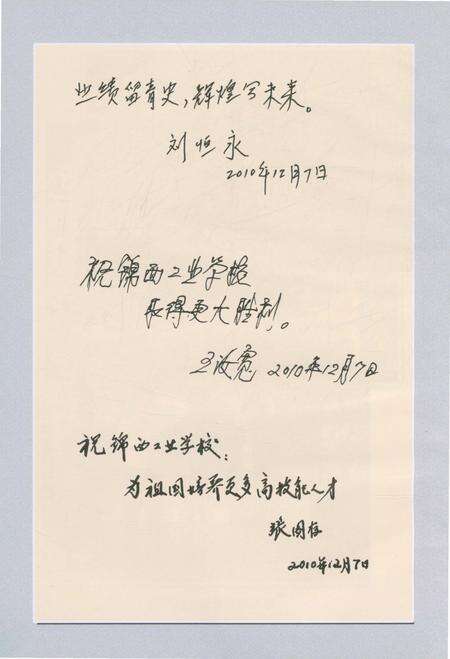 业绩留青史，辉煌写未来。
刘恒永
2010年12月7日
祝锦西工业学校
取得更大胜利。
王汝宽 2010年12月7日
祝锦西工业学校：
为祖国培养更多高技能人才
张国存
2010年12月7日